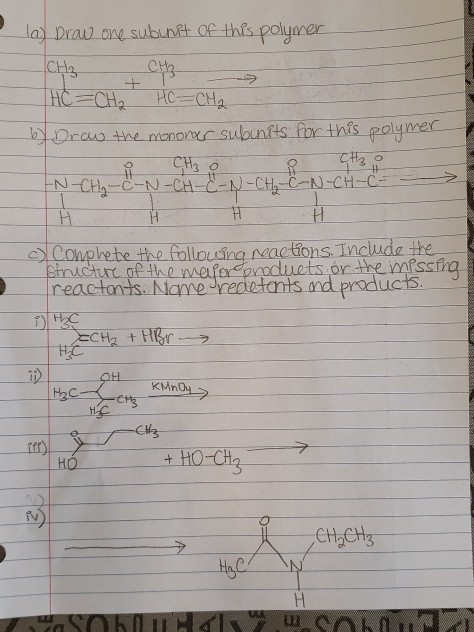 1a) Draw one subunit of this polymer
CH3 CH3
+
HC=CH2 HC=CH2
b) Draw the monomer subunits for this polymer
O CH3 O O CH3 O
-N-CH2-C-N-CH-C-N-CH2-C-N-CH-C-
H H H H
c) Complete the following reactions. Include the
structure of the major products or the missing
reactants. Name and products.
i) H3C
=CH2 + HBr
H3C
ii) OH
H3C CH3 KMnO4
H3C
iii) O CH3
HO + HO-CH3
iv)
O
CH2CH3
H3C N
H